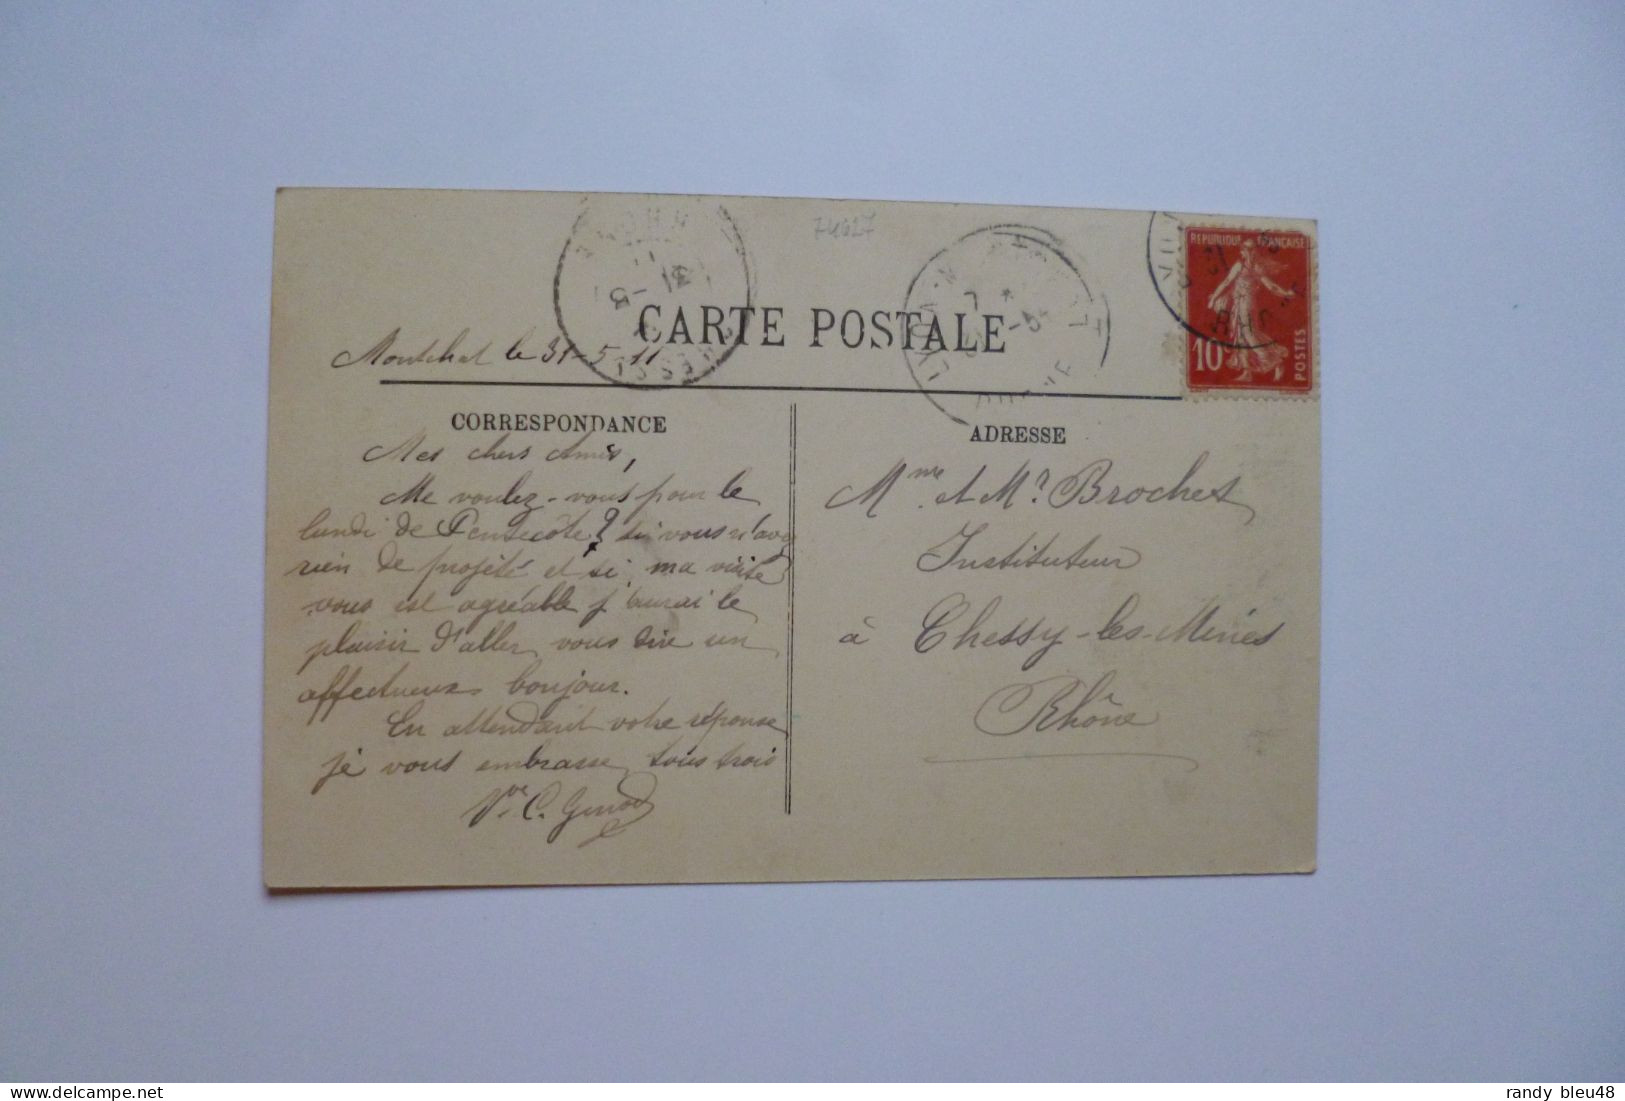 74627
CARTE POSTALE
Montchat le 31-5-11
CORRESPONDANCE
Mes chers Amis,
Me voulez-vous pour le
lundi de Pentecôte? si vous n'avez
rien de projeté et si ma visite
vous est agréable j'aurai le
plaisir d'aller vous dire un
affectueux bonjour.
En attendant votre réponse
je vous embrasse tous trois
Vve C. Genod
ADRESSE
Mme et Mr Brochet
Instituteur
à Chessy-les-Mines
Rhône
REPUBLIQUE FRANÇAISE
10c
POSTES
randy bleu48